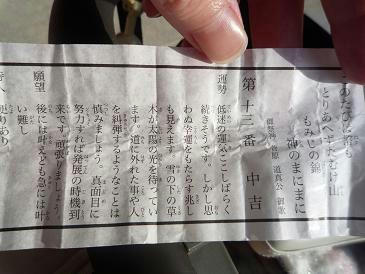 このたびは幣も
とりあへず手むけ山
もみぢの錦
神のまにまに
御祭神 菅原道真公 御歌
第十三番 中吉
運勢 低迷の運気ここしばらく
続きそうです。しかし思
わぬ幸運をもたらす兆し
も見えます。雪の下の草
木が太陽の光を待ってい
ます。道に外れた事や人
を糾弾するようなことは
慎みましょう。真面目に
努力すれば発展の時機到
来です。頑張りましょう。
願望 後には叶えども急には叶
い難し
便りあり